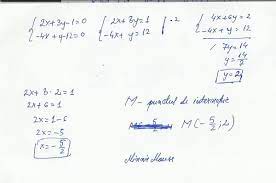 { 2x+3y-1=0
{ -4x+y-12=0
{ 2x+3y=1 |·2
{ -4x+y=12
{ 4x+6y=2
{ -4x+y=12
/ 7y=14
y=14/7
y=2
2x+3·2=1
2x+6=1
2x=1-6
2x=-5
x=-5/2
M- punctul de intersectie
M(-5/2;2)
Minnie Mouse